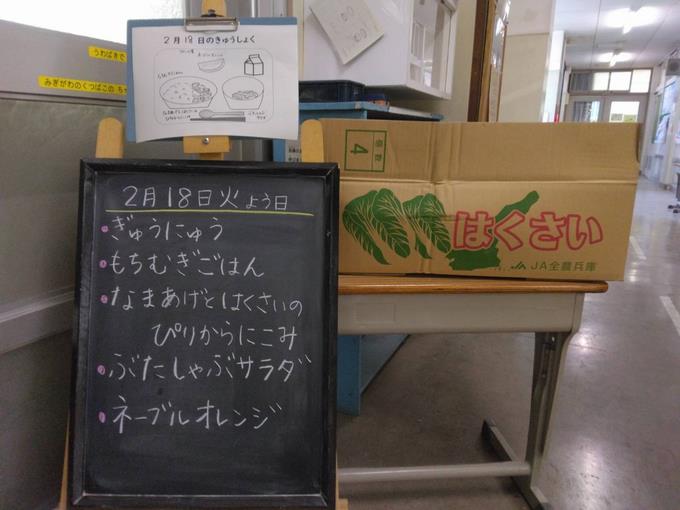 2月18日のきゅうしょく
うわばきで
みぎがわのくつばこの
2月18日火よう日
・ぎゅうにゅう
・もちむぎごはん
・なまあげとはくさいの
ぴりからにこみ
・ぶたしゃぶサラダ
・ネーブルオレンジ
4
はくさい
JA JA全農兵庫